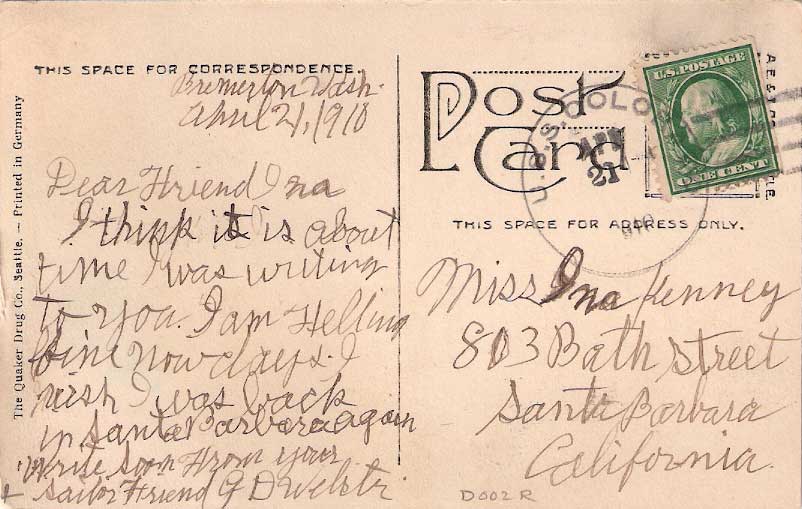 THIS SPACE FOR CORRESPONDENCE.
Bremerton Wash.
April 21, 1910
Dear Friend Ina
I think it is is about
time I was writing
to you. I am Felling
fine now days. I
wish I was back
in Santa Barbara again
write soon From your
+ sailor Friend G D
The Quaker Drug Co., Seattle. — Printed in Germany
Post
Card
U.S. POSTAGE
ONE CENT
U.S.S. COLO
APR
21
THIS SPACE FOR ADDRESS ONLY.
Miss Ina Kenney
803 Bath Street
Santa Barbara
California.
D002R